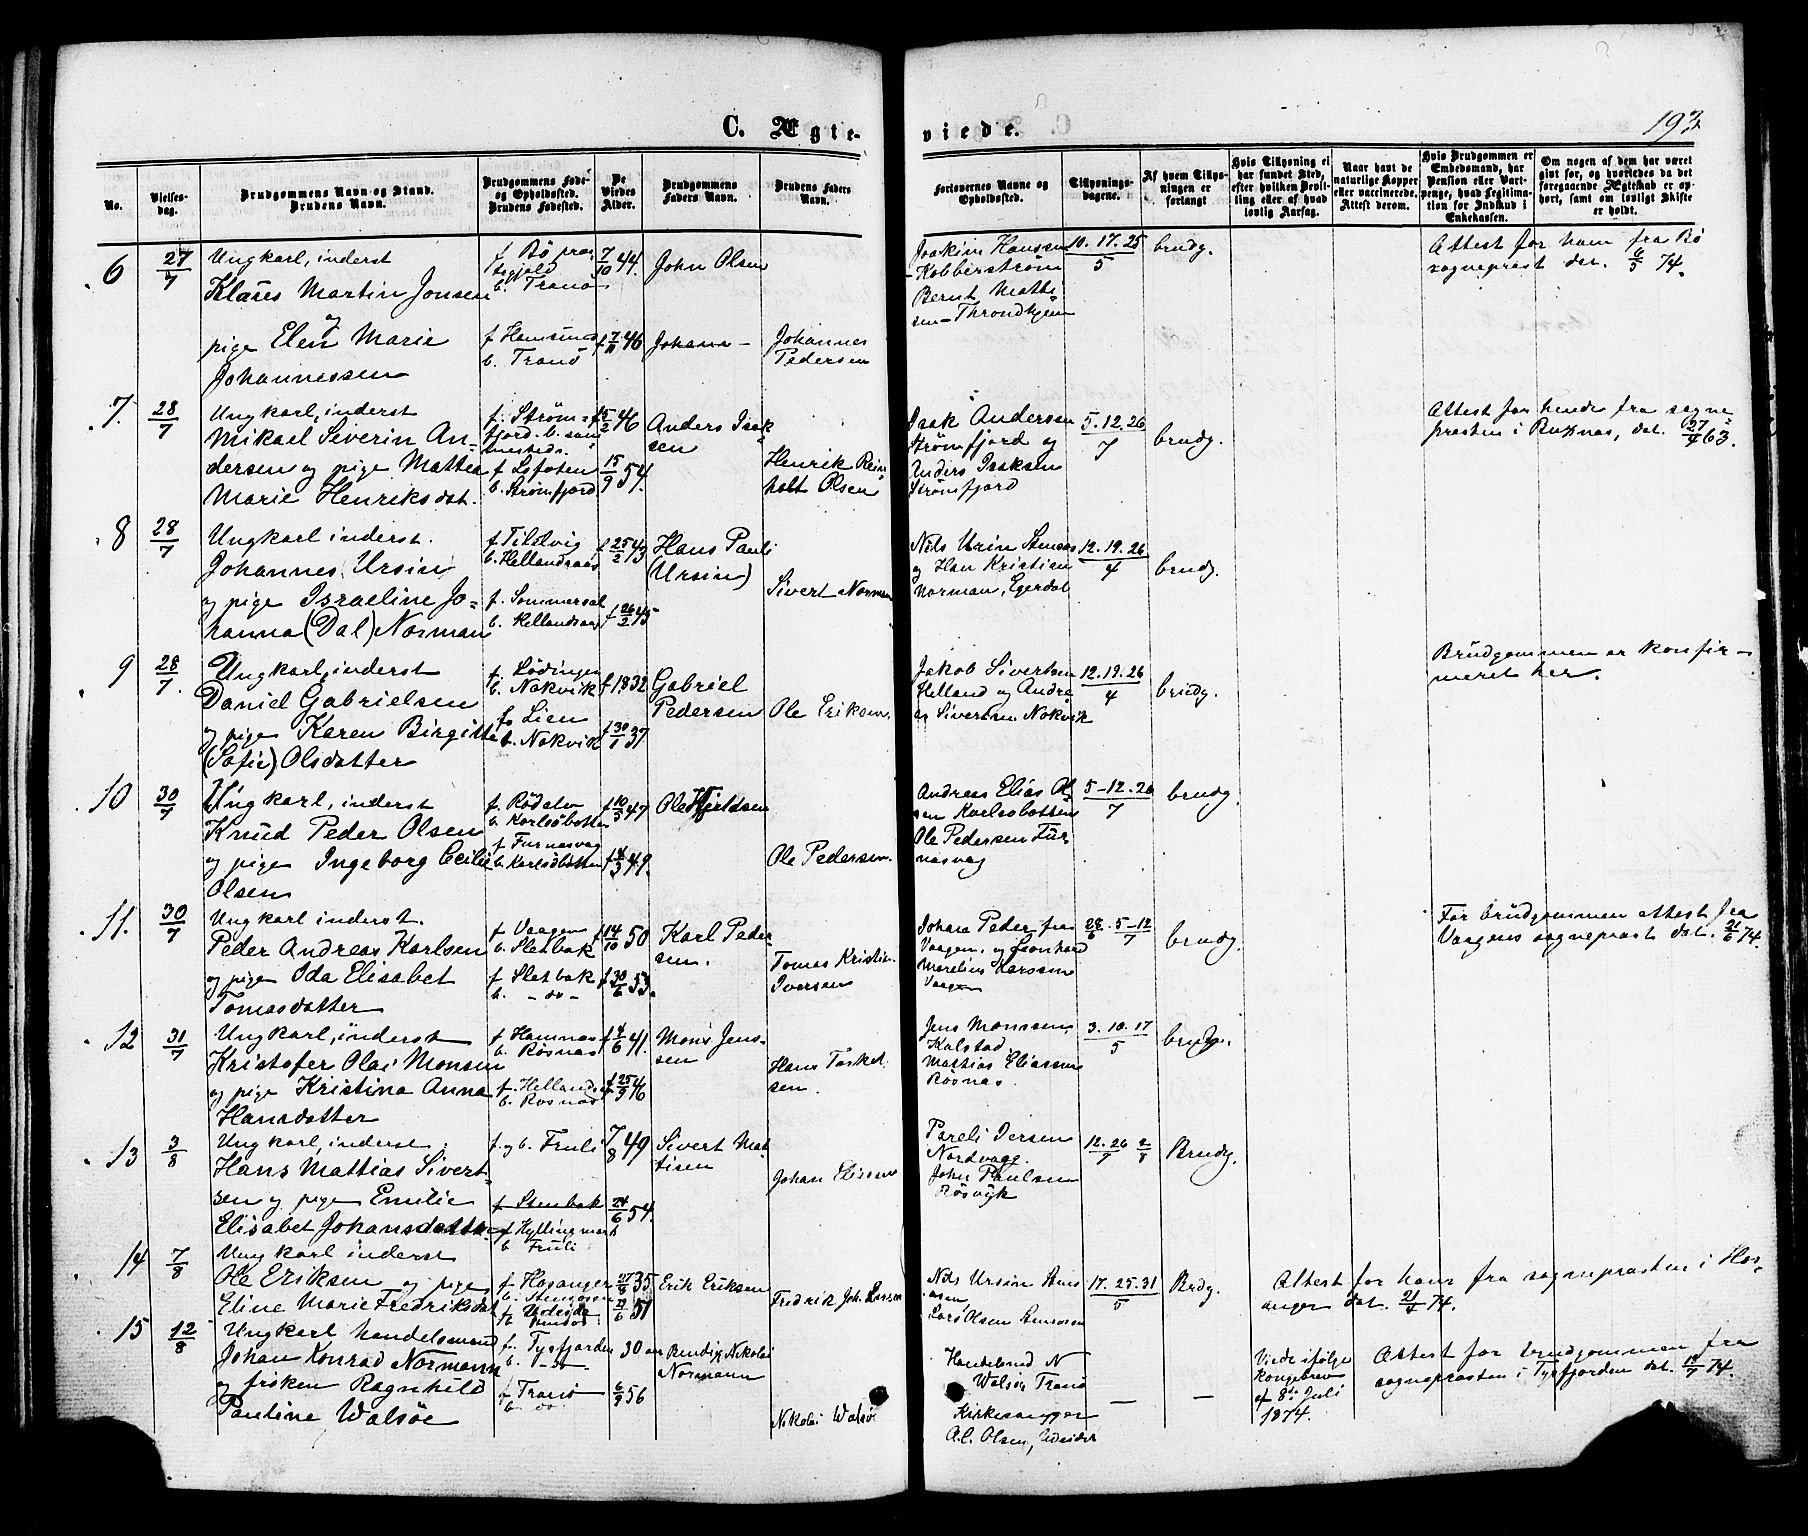 C. Ægte-
viede.
193
No.
Vielses-
dag.
Brudgommens Navn og Stand.
Brudens Navn.
Brudgommens Føde-
og Opholdssted.
Brudens Fødested.
De
Viedes
Alder.
Brudgommens
Faders Navn.
Brudens Faders
Navn.
Forlovernes Navne og
Opholdssted.
Tillysnings-
dagene.
Af hvem Tillys-
ningen er
forlangt
Hvis Tillysning ei
har fundet Sted,
efter hvilken Bevil-
ling eller af hvad
lovlig Aarsag.
Naar havt de
naturlige Kopper
eller vaccinerede.
Attest derom.
Hvis Brudgommen er
Embedsmand, har
Pension eller Vart-
penge, hvad Legitima-
tion for Indskud i
Enkekassen.
Om nogen af dem har været
gift før, og hvorledes da det
foregaaende Ægteskab er op-
hørt, samt om lovligt Skifte
er holdt.
6
27/7
Ungkarl, inderst
Klaus Martin Jonsen
og
pige Elen Marie
Johannessen
f Bø præ-
stegjeld
b. Tranø
f Hamsund
b. Tranø
7/10 44.
John Olsen
Johannes
Pedersen
Joakim Hanssen
Kobberstrøm
Bernt Matti
sen - Throndhjem
10. 17. 25
5
brudg.
Attest for ham fra Bø
sogneprest dat. 6/5 74.
7.
28/7
Ungkarl, inderst
Mikael Siverin An-
dersen og pige Mattea
Marie Henriksdat.
f. Strøm-
fjord. b. sam
mesteds.
f Lofoten
b. Strømfjord.
15/2 46
15/9 54.
Anders Isak
sen
Henrik Rein
holt Olsen
Isak Andersen
Strømfjord og
Anders Isaksen
Strømfjord
5. 12. 26
7
brudg.
Attest for hende fra sogne
presten i Buknæs, dat. 27/4 63.
8
28/7
Ungkarl inderst.
Johannes Ursin
og pige Israeline Jo-
hanna (Dal) Norman
b. Hellandsaas
f. Sommersel
b. Hellandsaas
f 25/2 43
f 26/2 45
Hans Pauli
(Ursin)
Sivert Norman
Nils Ursin Stensas
og Han Kristien
Norman, Egerdal
12. 19. 26
4
brudg.
9
28/7.
Ungkarl, inderst
Daniel Gabrielsen
og pige Karen Birgitte
(Sofie) Olsdatter
f. Lødingen
b. Nakvik
f. Lien
b. Nakvik
f 1832
f 30/1 37
Gabriel
Pedersen
Ole Eriksen.
Jakob Sivertsen
Helland og Andre
as Sivertsen Nokvik
12. 19. 26
4
brudg.
Brudgommen er konfir-
meret her.
10
30/7
Ungkarl, inderst
Knud Peder Olsen
og pige Ingeborg Cecilie
Olsen
f. Rødelv
b. Karlsøbotten
f Furnesvag
b. Karlsøbotten
f 10/5 47
f 4/3 49.
Ole Kjeldsen
Ole Pedersen.
Andreas Elias Ol
sen Karlsobotten
Ole Pedersen Fur
nesvag
5-12. 26
7
brudg.
11.
30/7
Ungkarl inderst.
Peder Andreas Karlsen
og pige Ida Elisabet
Tomasdatter
f Vaagen
b. Sletbak
f Sletbak
b. -do-
f 14/10 50
f 30/6 53.
Karl Peder
sen.
Tomas Kristia
Iversen
Johan Peder fra
Vaagen, og Leonhard
Marelius Larssen
Vaagen
28/6 5-12/7
brudg.
For brudgommen attest fra
Vaagens sogneprest dat. 21/6 74.
12
31/7
Ungkarl, inderst
Kristofer Olai Monsen
og pige Kristina Anna
Hansdatter
f. Hamnes
b. Røsnæs
b. Rosnæs
f 4/6 41.
f 25/9 46
Mons Jens-
sen
Hans Torkel
sen.
Jens Monssen
Kalstad.
Mattias Eliassen
Røsnæs.
3. 10. 17
5
brudg.
13
3/8
Ungkarl, inderst
Hans Mattias Sivert-
sen og pige Emilie
Elisabet Johansdatter
f. og b. Fruli
f Stenbak
f Kyllingmark
b Fruli
7/8 49
24/6 54.
Sivert Mat-
tisen
Johan Eliassen
Pareli Iversen
Nordvagg.
John Paulsen
Røsvik
12. 26 2/8
7
Brudg.
14
7/8
Ungkarl inderst
Ole Eriksen og pige
Eline Marie Fredriksdat
f Hosanger
27/8 35
21/6 51
Erik Eriksen
Fredrik Joh. Larssen
Nils Ursin Sten
søsen,
Lars Olsen Stensosen
17. 25. 31
5
Brdg.
Attest for ham fra sognepresten i Hos-
anger dat. 21/4 74.
15
12/8
Ungkarl handelsmand
Johan Konrad Normann
og frøken Ragnhild
Pauline Walsøe
f. Tysfjorden
b. -do-
f Tranø
b. do
30 aar
6/9 56
Bendix Nikolai
Normann
Nikolai Walsøe
Handelsmd N
Walsøe Tranø
Kirkesanger
A. C. Olsen,
—
—
Viede ifølge
Kongebrev
af 8de Juli
1874.
Attest for brudgommen fra
sognepresten i Tysfjorden dat. 10/7 74.